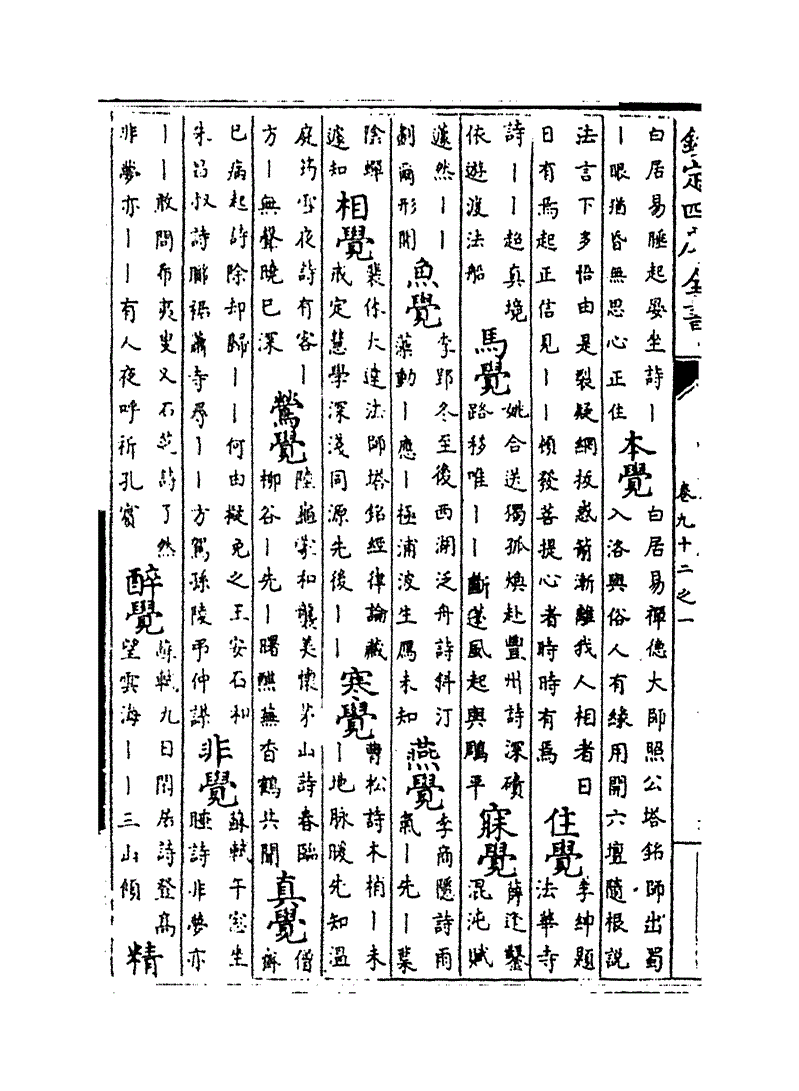 欽定四庫全書 卷九十二之一
白居易睡起晏坐詩｜
｜眼猶昏無思心正住
本覺
白居易禪德大師照公塔銘師出蜀
入洛與俗人有緣用開六壇隨根説
法言下多悟由是裂疑網拔惑箭漸離我人相者日
日有焉起正信見｜｜頓發菩提心者時時有焉
住覺
李紳題
法華寺
詩｜｜超真境
依遊渡法船
馬覺
姚合送獨孤煥赴豐州詩深磧
路移唯｜｜斷蓬風起與鵰平
寐覺
薛逢鑿
混沌賦
蘧然｜｜
劃爾形開
魚覺
李郢冬至後西湖泛舟詩斜汀
藻動｜應｜極浦波生鴈未知
燕覺
李商隱詩雨
氣｜先｜葉
陰蟬
遽知
相覺
裴休大達法師塔銘經律論藏
戒定慧學深淺同源先後｜｜
寒覺
曹松詩木梢｜未
｜地脉暖先知溫
庭筠雪夜詩有客｜
方｜無聲曉已深
鶯覺
陸龜蒙和襲美懷茅山詩春臨
柳谷｜先｜曙醮蕪香鶴共聞
真覺
僧
齊
已病起詩除却歸｜｜何由擬免之王安石和
朱昌叔詩聊裾蕭寺尋｜｜方駕孫陵弔仲謀
非覺
蘇軾午窗坐
睡詩非夢亦
｜｜敢問希夷叟又石芝詩了然
非夢亦｜｜有人夜呼祈孔賓
醉覺
蘇軾九日閒居詩登高
望雲海｜｜三山傾
精